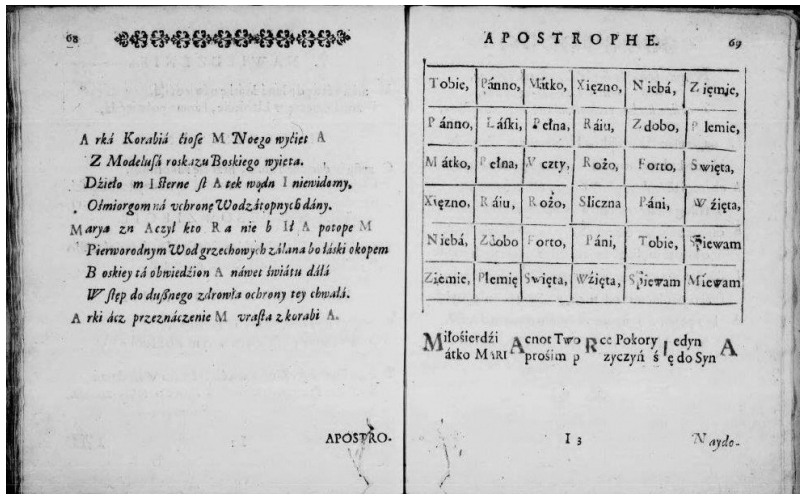 68
A rká Korabiá ćiose M Noego wyćięt A
Z Modelusá roskazu Boskiego wyięta.
Dźieło m I sterne st A tek wodn I niewidomy,
Ośmiorgom ná vchronę Wod zátopnych dány.
Marya zn Aczył kto R a nie b Ił A potope M
Pierworodnym Wod grzechowych zálana bo łáski okopem
B oskiey tá obwiedźion A náwet świátu dáłá
W stęp do dusznego zdrowia ochrony tey chwałá.
A rki ácz przeznáczenie M vrasta z korabi A.
APOSTRO-
APOSTROPHE. 69
Tobie, Pánno, Mátko, Xięzno, Niebá, Ziemie,
Pánno, Łáski, Pełna, Ráiu, Zdobo, Plemie,
Mátko, Pełna, Vczty, Rożo, Forto, Swięta,
Xięzno, Ráiu, Rożo, Sliczna Páni, Wźięta,
Niebá, Zdobo Forto, Páni, Tobie, Spiewam
Ziemie, Plemię Swięta, Wźięta, Spiewam Miewam
Miłośierdźi Acnot Two Rce Pokory Iedyn
átko MARI prośim p zyczyń ś ę do Syn A
I 3
Naydo-